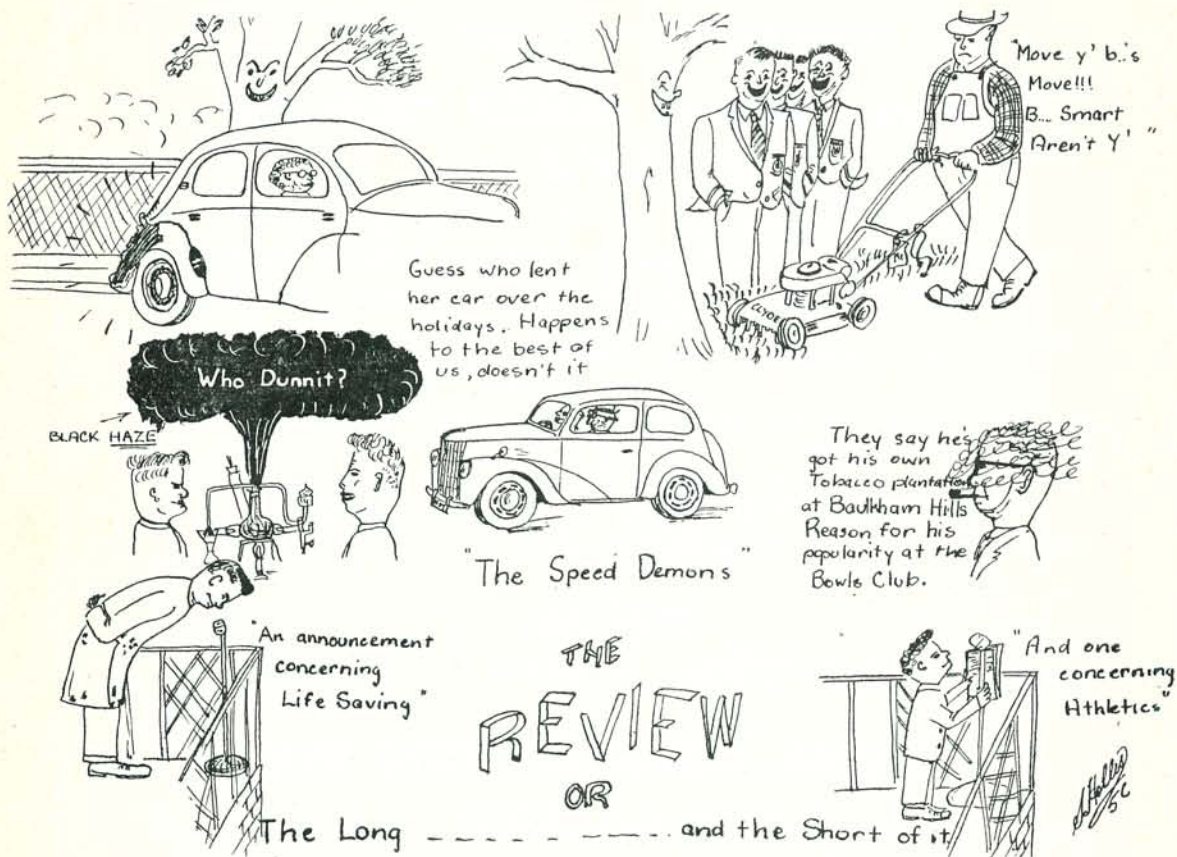 "Move y' b..'s
Move!!!
B.... Smart
Aren't Y' "
CLYDE
Guess who lent
her car over the
holidays. Happens
to the best of
us, doesn't it
Who Dunnit?
BLACK HAZE
"The Speed Demons"
They say he's
got his own
Tobacco plantation
at Baulkham Hills
Reason for his
popularity at the
Bowls Club.
"An announcement
concerning
Life Saving"
THE
REVIEW
OR
"And one
concerning
Athletics"
The Long _ _ _ _ _ _ _ _ _ and the Short of it